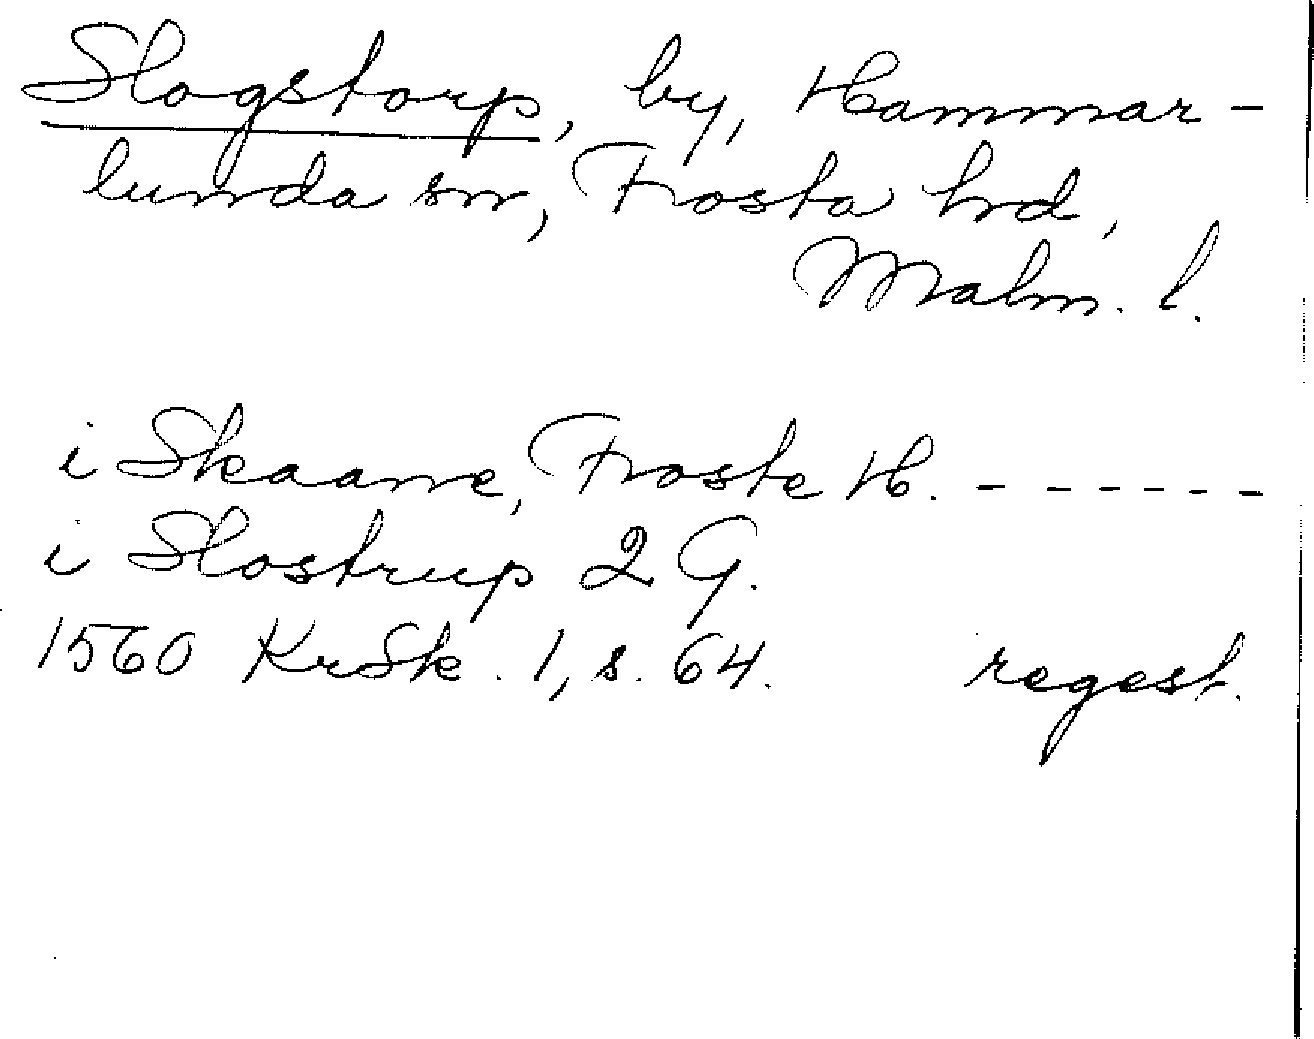 Slogstorp, by, Hammar-
lunda sn, Frosta hrd,
Malm. l.
i Skaane, Froste H. - - - - - -
i Slostrup 2 G.
1560 KrSk. 1, s. 64. regest.